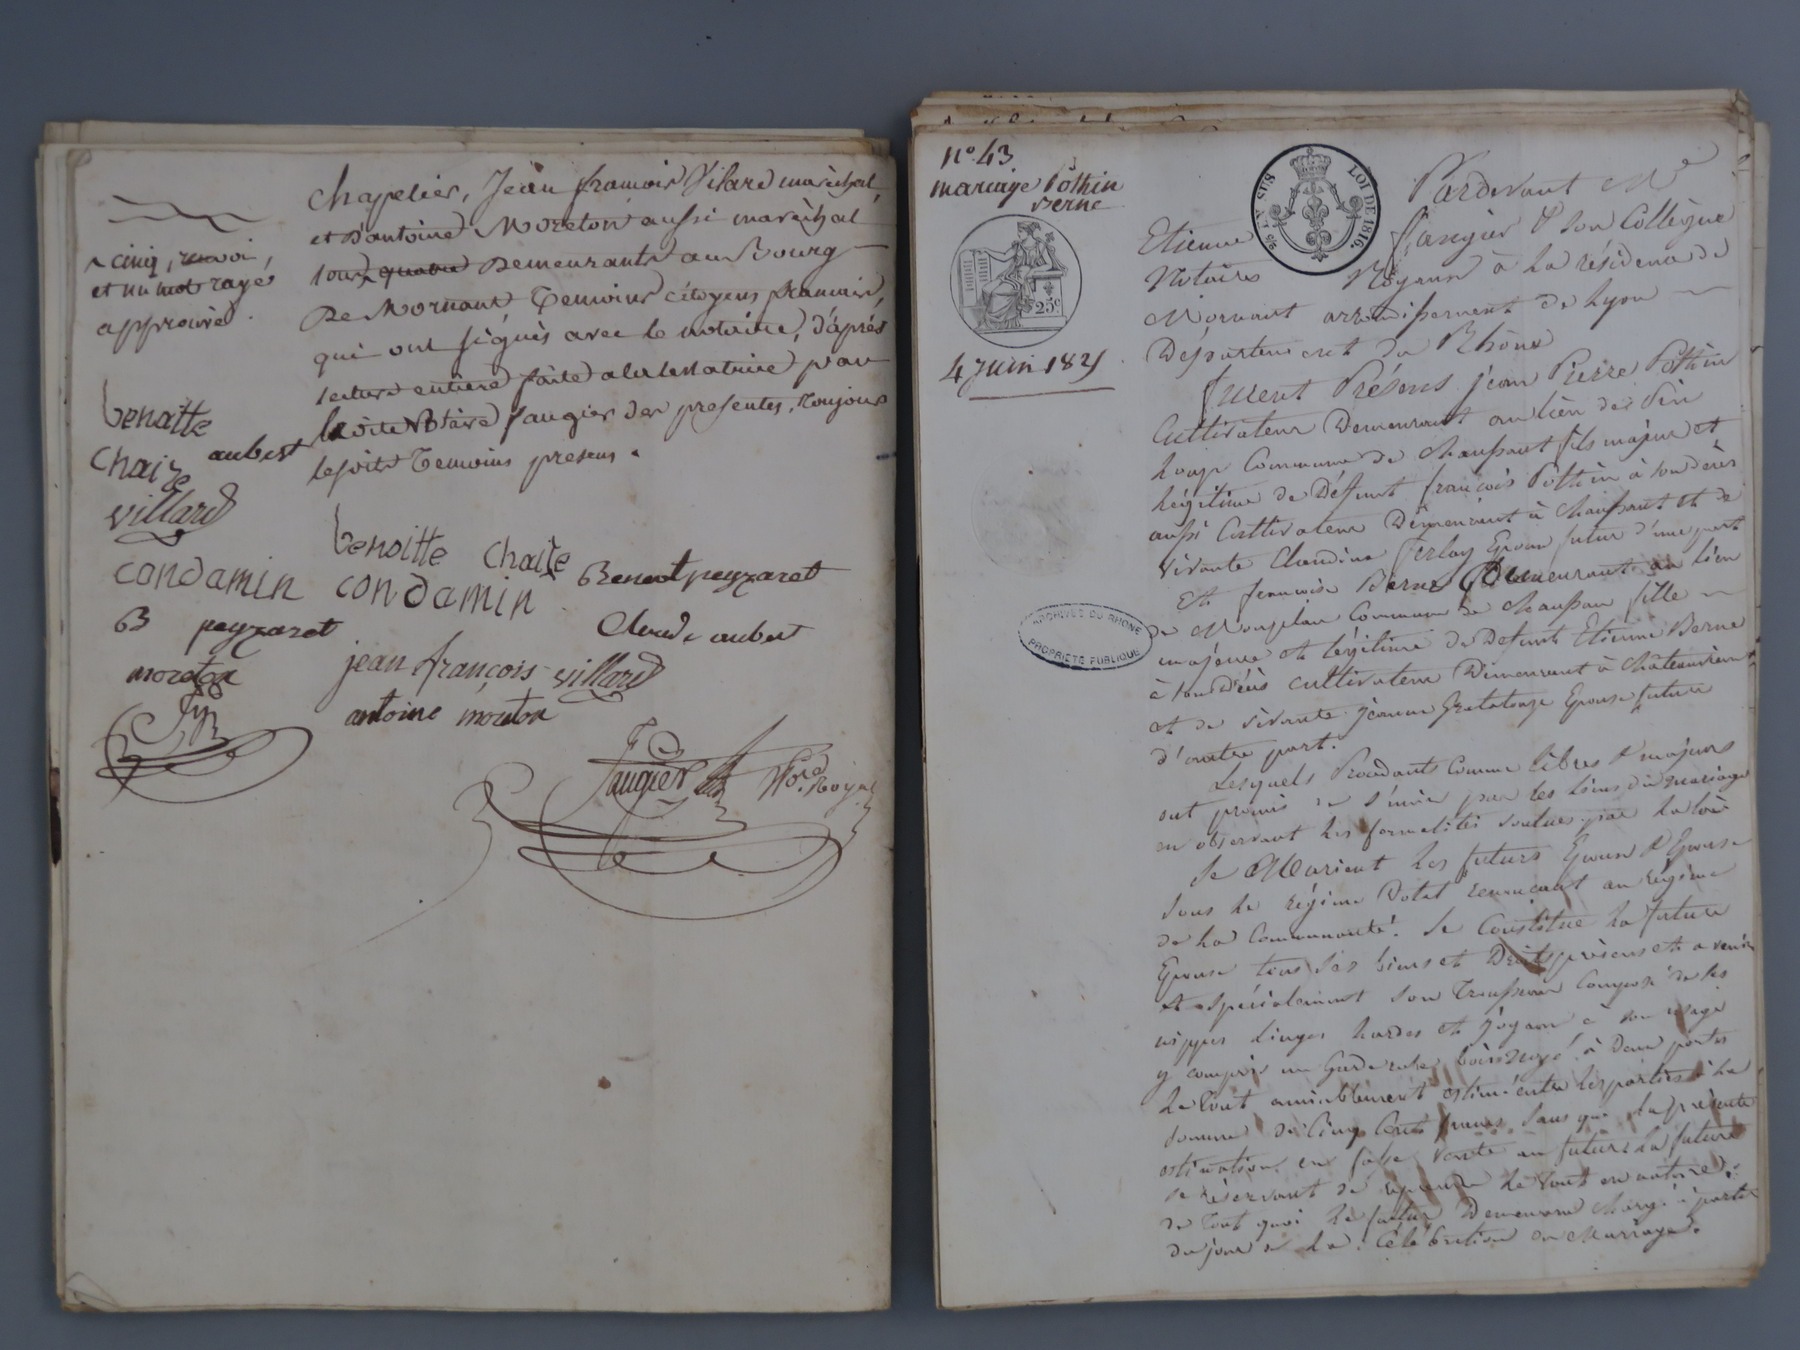 chapelier, Jean françois Vilard maréchal,
et d'antoine Moreton aussi maréchal
tous quatre demeurants au Bourg
De Mornant Temoins citoyens francais,
qui ont signés avec le notaire, d'après
lecture entiere faite a la testatrice par
ledit Notaire faugier des presentes, toujours
lesdits Temoins presens.
cinq, renvoi,
et un mot rayé
approuvé
benoitte
chaize aubert
villard
condamin
B peyzaret
moreton
benoitte chaize
condamin Benoit peyzaret
Claude aubert
jean françois villard
antoine moreton
faugier
Nore. Royal
n° 43
mariage Pothin
Berne
25c
4 Juin 1821
EN SUS
LOI DE 1816.
ARCHIVES DU RHONE
PROPRIETE PUBLIQUE
Pardevant Me
Etienne faugier & son Collègue
Notaires Royaux à la résidence de
Mornant arrondissement de Lyon
Département du Rhône
furent Présens jean Pierre Pothin
Cultivateur Demeurant au lieu des Pin
Commune de Chaussant fils majeur et
légitime de Deffunt françois Pothin à son décès
aussi Cultivateur Demeurant à Chaussant et de
vivante Claudine ferlay Epoux futur d'une part
Et francoise Berne Demeurant au lieu
de Commune de Chaussan fille
majeure et légitime de Defunt Etienne Berne
à son Décès cultivateur Demeurant à Châteauvieux
et de vivante jeanne Epouse future
d'autre part.
Lesquels Procédants Comme libres & majeurs
ont promis de s'unir par les liens du mariage
en observant les formalités voulues par la loi
Se Marient les futurs Epoux & Epouse
sous le régime Dotal renonçant au régime
de la Communauté. Se Constitue la future
Epouse tous ses biens et Droits présens et a venir
et spécialement son Trousseau Composé de les
nippes linges hardes et joyaux à son usage
y compris un Garderobe bois noyé à Deux portes
Le tout amiablement estimé entre les parties à la
somme de Cinq Cent francs sans que la présente
estimation en fasse vente au futur la future
se réservant de reprendre le tout en nature
de Tout quoi le futur Demeurera chargé à partir
du jour de la Célébration du Mariage.